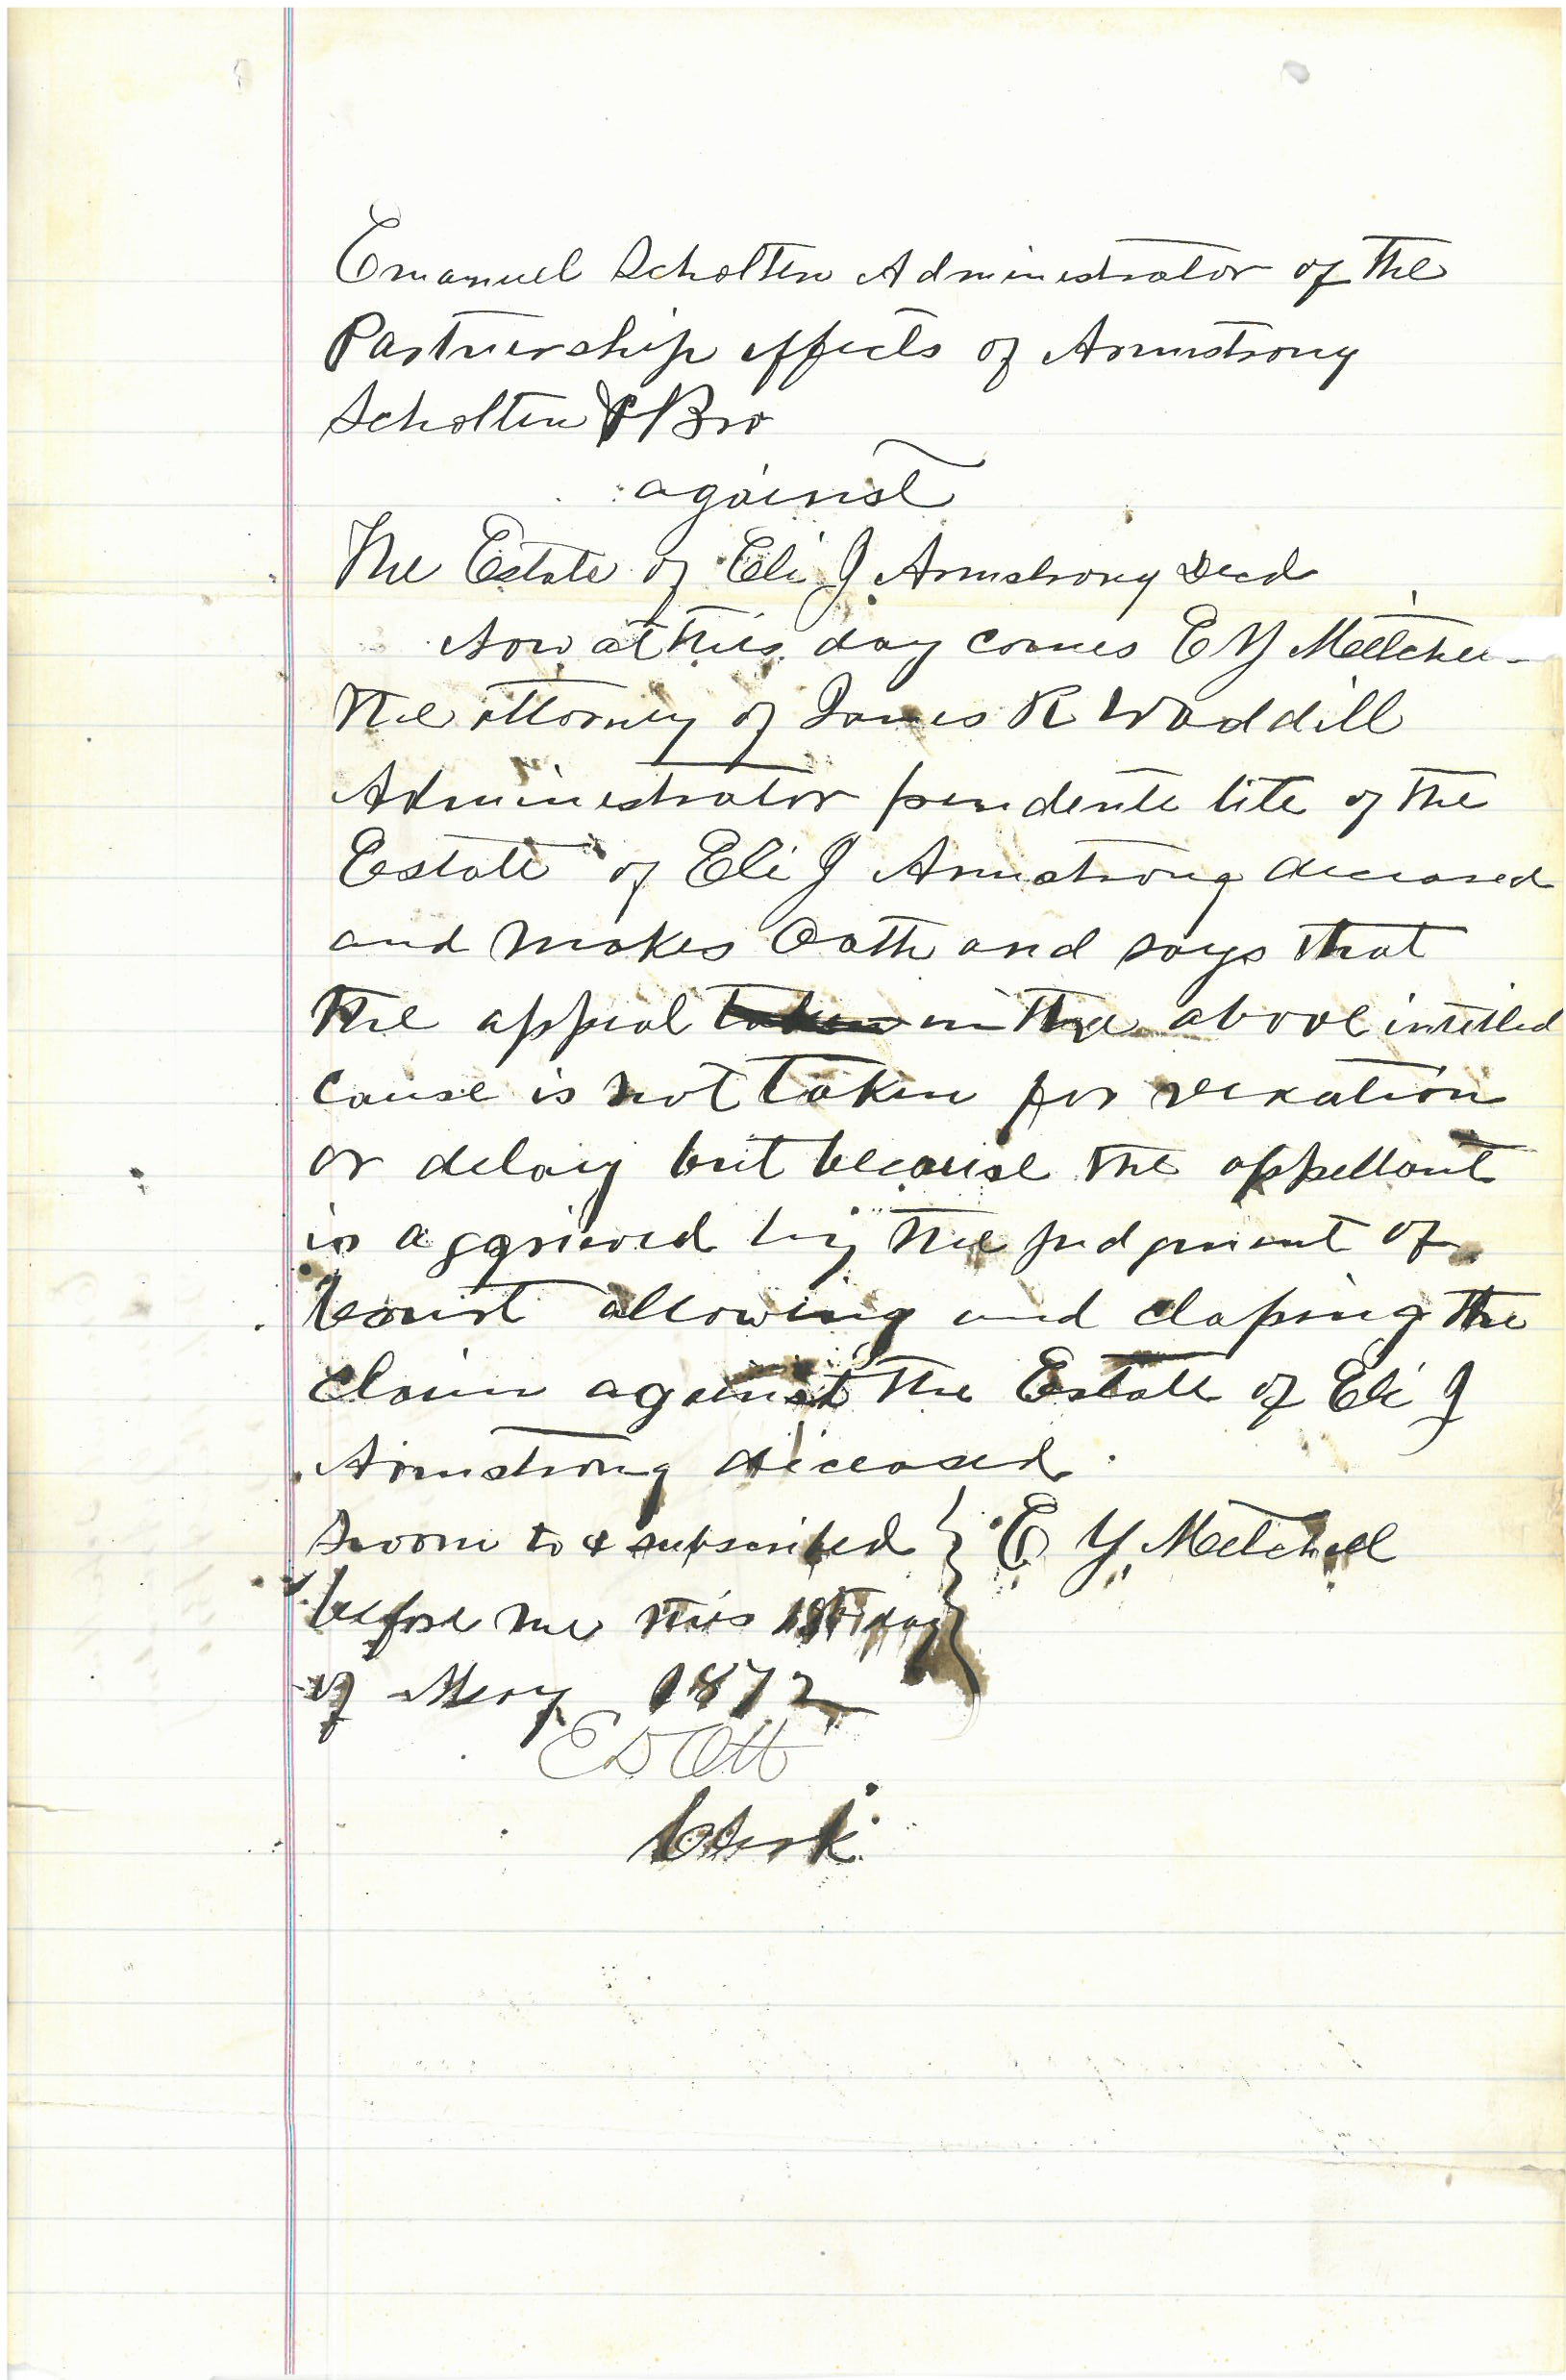 Emanuel Scholten Administrator of the
Partnership effects of Armstrong
Scholten & Bro
against
The Estate of Eli J Armstrong Decd
Now at this day comes E Y Mitchel
the attorney of James R Waddill
Administrator pendente lite of the
Estate of Eli J Armstrong deceased
and makes Oath and says that
the appeal taken in the above intitled
cause is not taken for vexation
or delay but because the appellant
is aggrieved by the judgment of
Court allowing and classing the
claim against the Estate of Eli J
Armstrong deceased.
Sworn to & subscribed } E Y Mitchell
before me this 1st day
of May 1872
E D Ott
Clerk